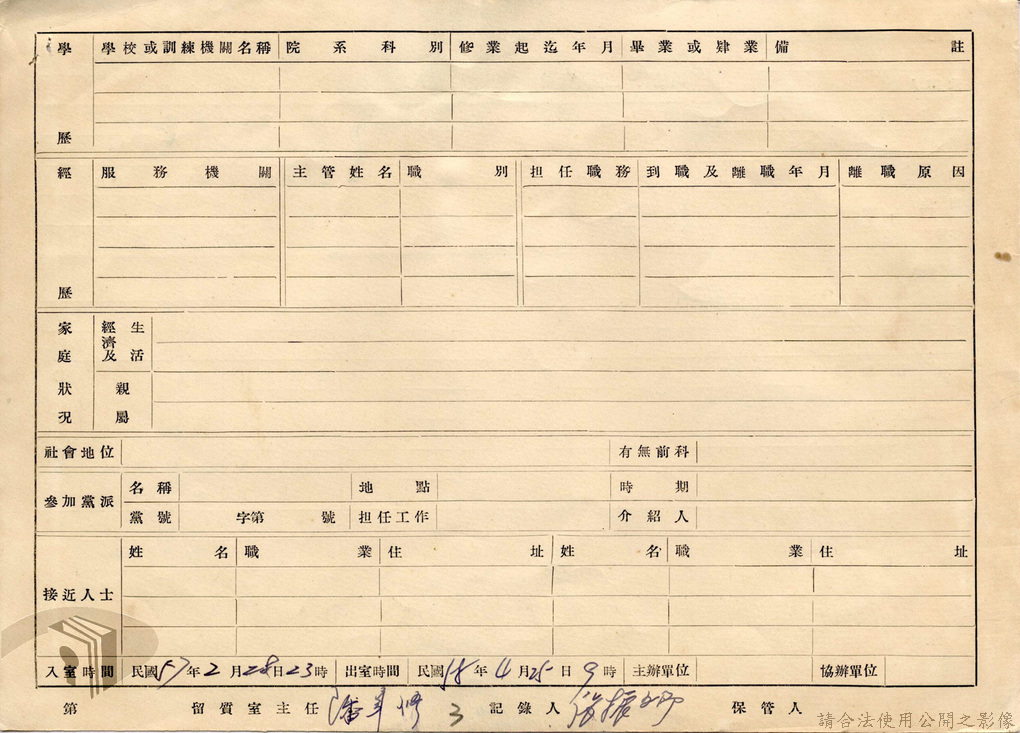 學歷 學校或訓練機關名稱 院系科別 修業起迄年月 畢業或肄業 備註
經歷 服務機關 主管姓名 職別 担任職務 到職及離職年月 離職原因
家庭狀況 經濟及生活
親屬
社會地位 有無前科
參加黨派 名稱 地點 時期
黨號 字第 號 担任工作 介紹人
接近人士 姓名 職業 住址 姓名 職業 住址
入室時間 民國57年2月28日23時 出室時間 民國58年4月25日9時 主辦單位 協辦單位
第 留質室主任 潘 3 記錄人 張振 保管人
請合法使用公開之影像